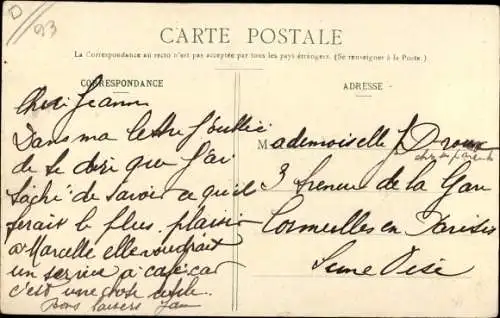 D
93
CARTE POSTALE
La Correspondance au recto n'est pas acceptée par tous les pays étrangers. (Se renseigner à la Poste.)
CORRESPONDANCE
Jeanne
Dans ma lettre j'oublié
de te dire que j'ai
taché de savoir ce qu'il
ferait le plus plaisir
a Marcelle elle voudrait
un service a café car
c'est une chose utile.
bons baisers
ADRESSE
Mademoiselle J Droux
chez ses parents
3 Avenue de la Gare
Cormeilles en Parisis
Seine Oise